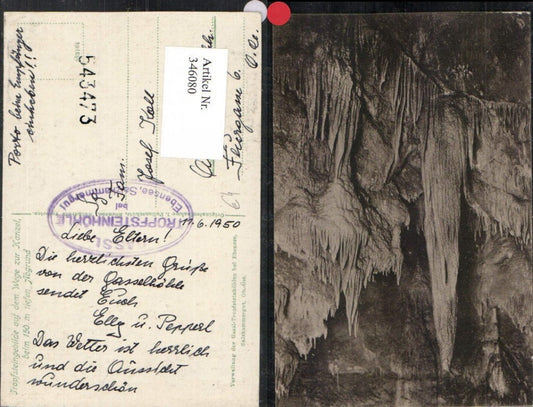 Porto beim Empfänger
einheben!!
543473
Artikel Nr.
346080
Fam.
Josef Koll
Fliegerg. 6.
O. Oe.
64
GASSL
TROPFSTEINHÖHLE
bei
Ebensee, Salzkammergut
11.6.1950
Liebe Eltern!
Die herzlichsten Grüße
von der Gasselhöhle
sendet Euch
Elly u. Pepperl
Das Wetter ist herrlich
und die Aussicht
wunderschön
Tropfsteingebilde auf dem Wege zur Kanzel,
beim 150 m tiefen Abgrund
Verwaltung der Gassl-Tropfsteinhöhlen bei Ebensee,
Salzkammergut, Ob.-Oe.